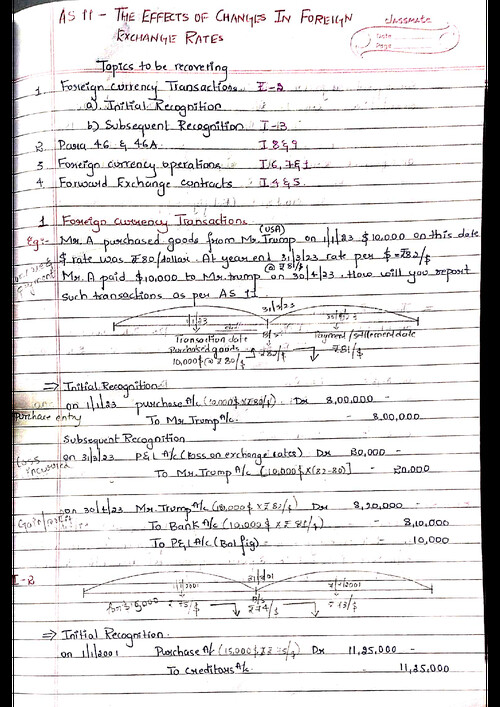 AS 11 - THE EFFECTS OF CHANGES IN FOREIGN
EXCHANGE RATES
classmate
Date
Page
Topics to be recovering
1. Foreign currency Transactions I-2
a) Initial Recognition
b) Subsequent Recognition I-13
2. Para 46 & 46A I.8&9
3. Foreign currency operations I/6, 7&1
4. Forward Exchange contracts I.4&5
1 Foreign currency Transactions
(USA)
Eg:- Mr. A purchased goods from Mr. Trump on 1/1/23 $10,000 on this date
$ rate was ₹80/dollar. At year end 31/3/23 rate per $ = ₹82/$
@ ₹81/$
Mr. A paid $10,000 to Mr. trump on 30/4/23. How will you report
payment
such transactions as per AS 11
31/3/23
1/1/23
Transaction date B/s Payment/settlement date
Purchased goods ₹82/$ ₹81/$
10,000$@ ₹80/$
⇒ Initial Recognition
on 1/1/23 purchase A/c (10,000$x₹80/$) Dr 8,00,000
Purchase entry
To Mr. Trump A/c. - 8,00,000
Subsequent Recognition
on 31/3/23 P&L A/c (Loss on exchange rates) Dr 20,000 -
Loss incurred
To Mr. Trump A/c [10,000$x(82-80)] - 20,000
on 30/4/23 Mr. Trump A/c (10,000$x₹82/$) Dr 8,20,000 -
To Bank A/c (10,000$x₹81/$) - 8,10,000
To P&L A/c (Bal fig) - - 10,000
I-2
1/1/2001
₹75/$ ₹74/$ ₹73/$
⇒ Initial Recognition.
on 1/1/2001 Purchase A/c (15,000$x₹75/$) Dr 11,25,000
To creditors A/c. - 11,25,000